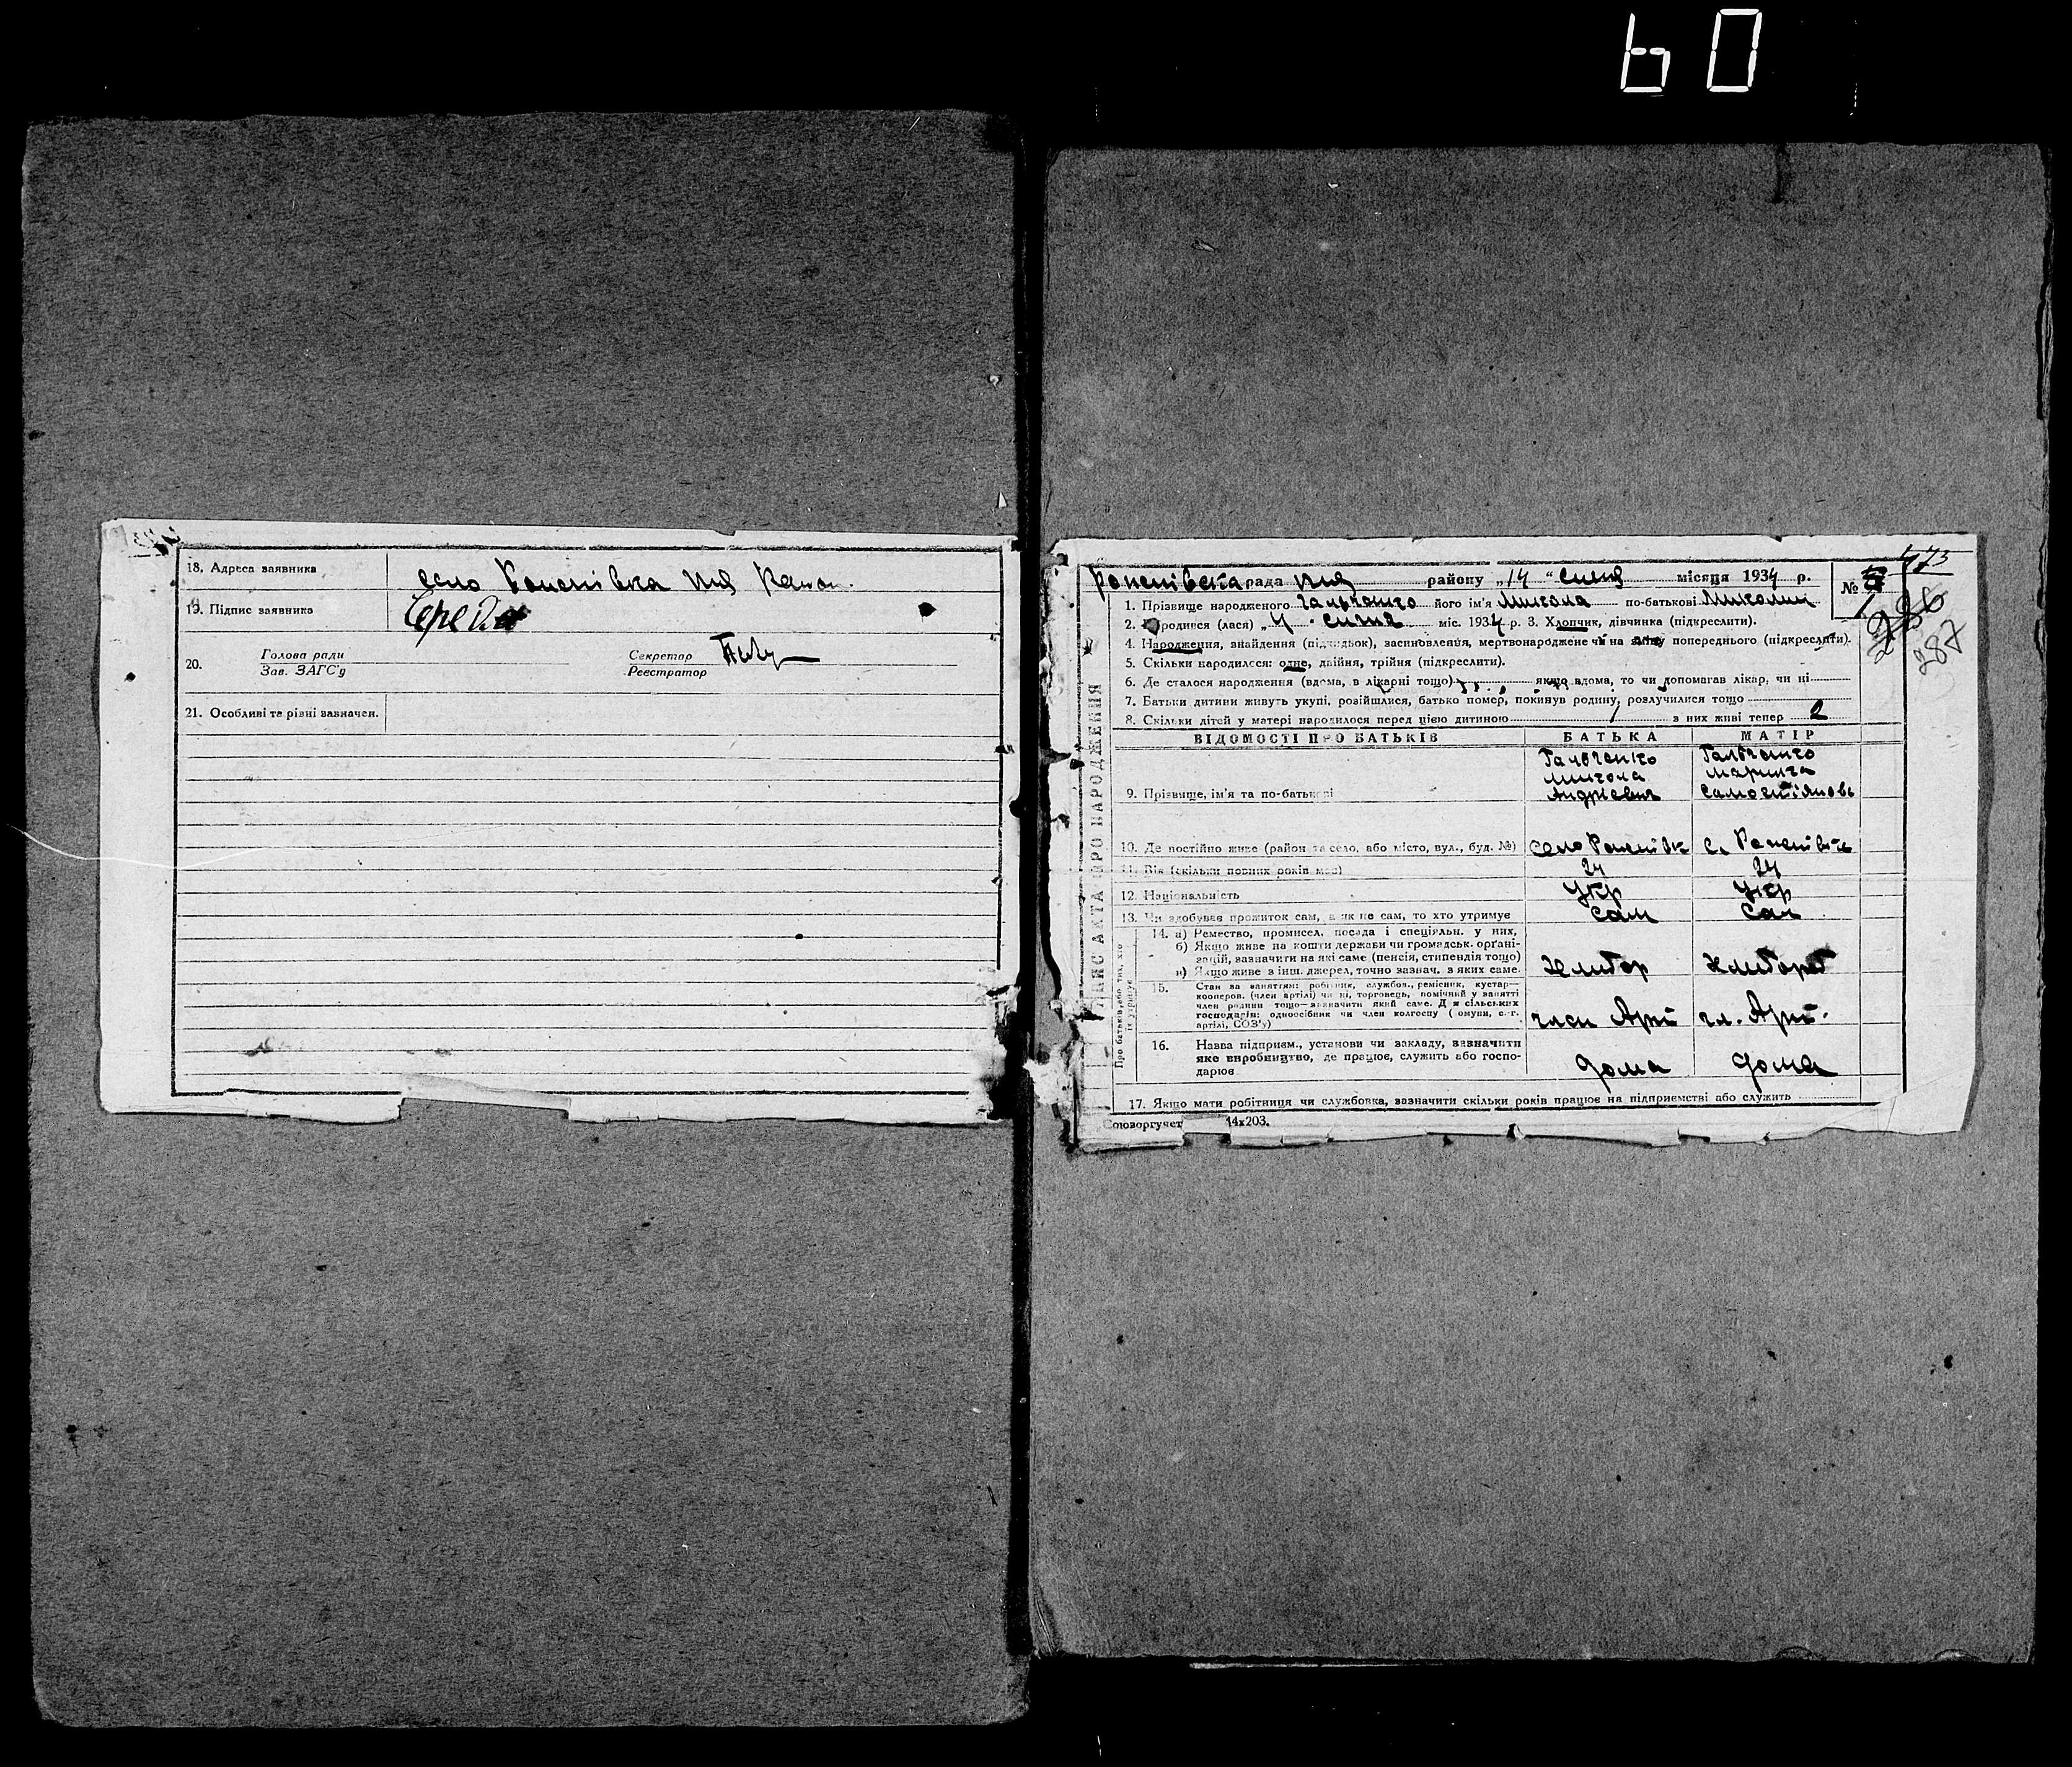 60
18. Адреса заявника
село
19. Підпис заявника
20. Голова ради
Зав. ЗАГС'у
Секретар
Реєстратор
21. Особливі та різні зазначен.
473
рада района „14“ січня місяця 1934 р.
№ 1
286
287
1. Прізвище народженого Гальченко його ім'я Микола по-батькові
2. Народився (лася) „ “ січня міс. 1934 р. 3. Хлопчик, дівчинка (підкреслити).
4. Народження, знайдення (підкидьок), засиновлення, мертвонароджене чи на зміну попереднього (підкреслити).
5. Скільки народилося: одне, двійня, трійня (підкреслити).
6. Де сталося народження (вдома, в лікарні тощо) якщо вдома, то чи допомагав лікар, чи ні
7. Батьки дитини живуть укупі, розійшлися, батько помер, покинув родину, розлучилися тощо
8. Скільки дітей у матері народилося перед цією дитиною 1 з них живі тепер 2
ВІДОМОСТІ ПРО БАТЬКІВ
БАТЬКА
МАТІР
9. Прізвище, ім'я та по-батькові
Гальченко
Микола
Андрієвич
Гальченко
10. Де постійно живе (район та село, або місто, вул., буд. №)
село
с.
11. Вік (скільки повних років має)
24
24
12. Національність
Укр
Укр
13. Чи здобуває прожиток сам, а як не сам, то хто утримує
сам
сам
ЗАПИС АКТА ПРО НАРОДЖЕННЯ
Про батьків, або тих, хто їх утримує
14. а) Ремество, промисел, посада і спеціяльн. у них,
б) Якщо живе на кошти держави чи громадськ. органі-
зацій, зазначити на які саме (пенсія, стипендія тощо)
в) Якщо живе з інш. джерел, точно зазнач. з яких саме.
15. Стан за заняттям: робітник, службов., ремісник, кустар—
кооперов. (член артілі) чи ні, торговець, помічний у занятті
член родини тощо—зазначити який саме. Для сільських
господарів: одноосібник чи член колгоспу (комуни, с.-г.
артілі, СОЗ'у)
член Арт
чл. Арт.
16. Назва підприєм., установи чи закладу, зазначити
яке виробництво, де працює, служить або госпо-
дарює
дома
дома
17. Якщо мати робітниця чи службовка, зазначити скільки років працює на підприємстві або служить
Союзоргучет 14х203.